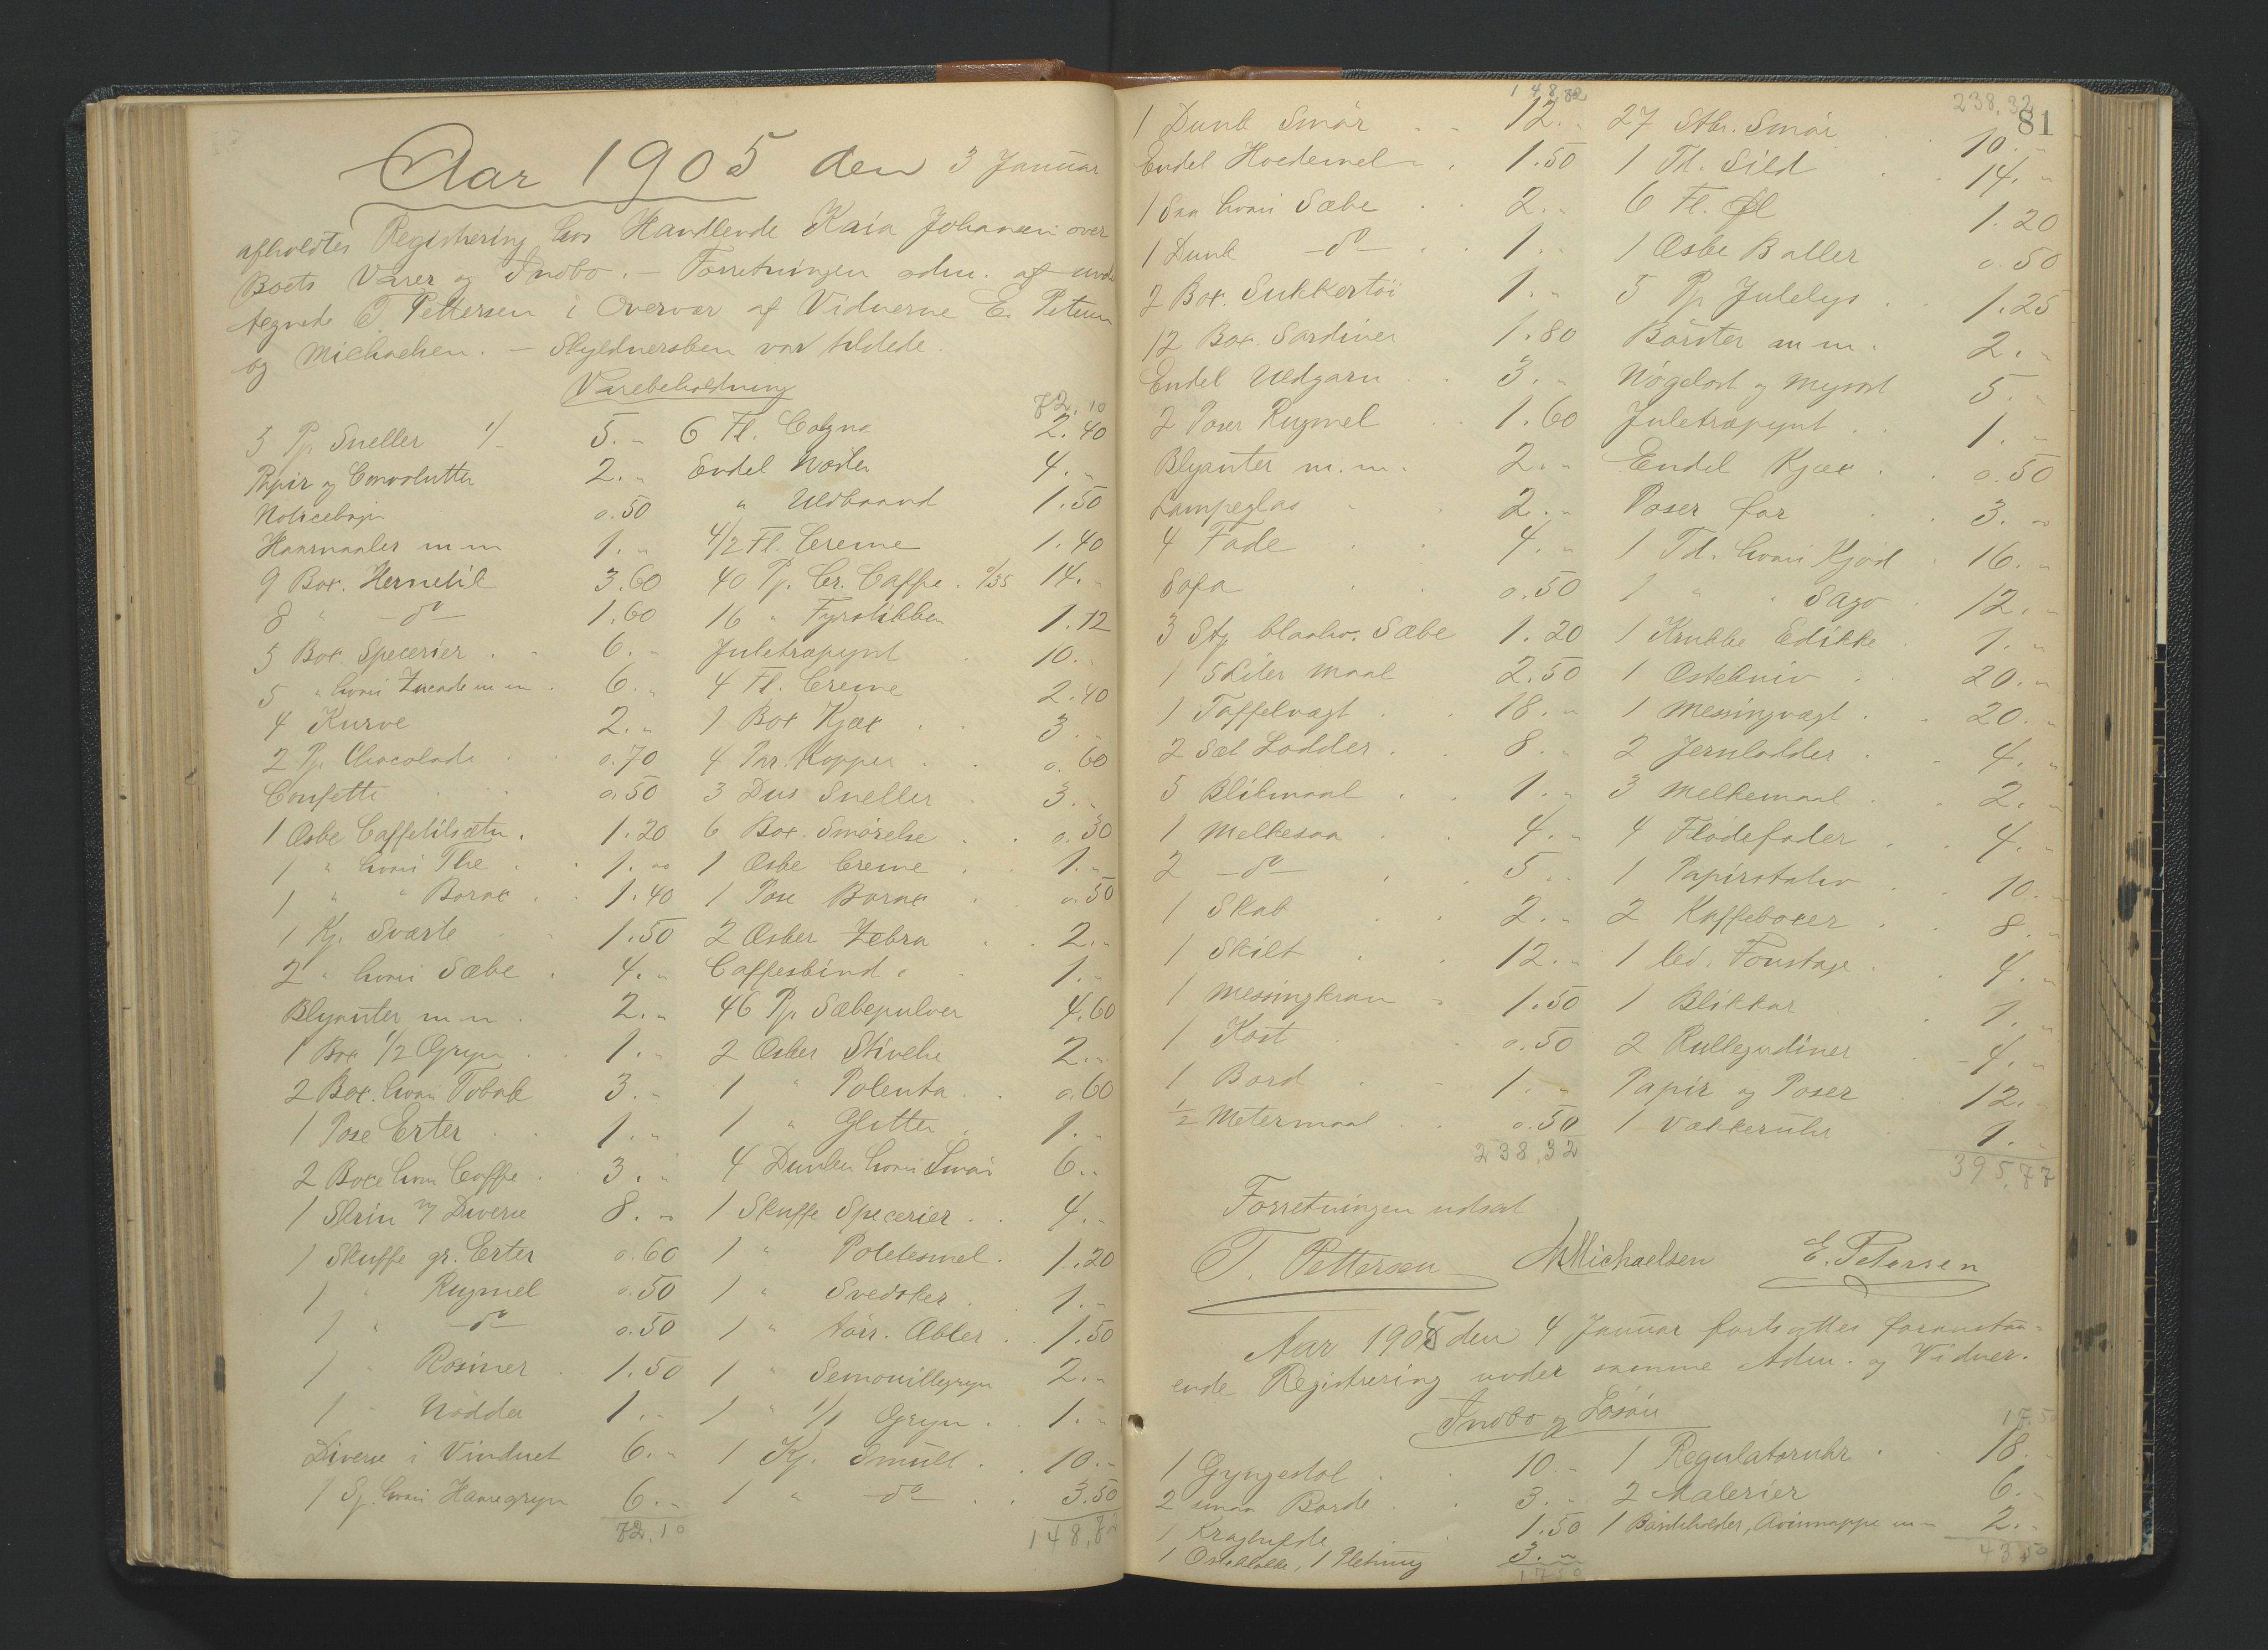 Aar 1905 den 3 Januar
afholdtes Registrering hos Handlende Kaia Johansen over
Boets Varer og Indbo. – Forretningen adm. af und
tegnede T. Pettersen i Overvær af Vidnerne E. Petersen
og Michaelsen. – Skyldnersken var tilstede.
Varebeholdning
3 Pp. Sneller 1/- 5. „
Papir og Convolutter 2. „
Noticebøger 0.50
Haarnaaler m m 1. „
9 Box. Hermetik 3.60
8 „ – do – 1.60
5 Box. Specerier 6. „
5 „ hvori Zucade m m 6. „
4 Kurve 2. „
2 Pp. Chocolade 0.70
Confetti 0.50
1 Æske Caffetilsætn. 1.20
1 „ hvori The 1. „
1 „ „ Borax 1.40
1 Kj. Sværte 1.50
2 „ hvori Sæbe 4. „
Blyanter m m 2. „
1 Box 1/2 Gryn 1. „
2 Box. hvori Tobak 3. „
1 Pose Erter 1. „
2 Boxe hvori Caffe 3. „
1 Skrin m/ Diverse 8. „
1 Skuffe gr. Erter 0.60
1 „ Rugmel 0.50
1 „ – do – 0.50
1 „ Rosiner 1.50
1 „ Nødder 1. „
Diverse i Vinduet 6. „
1 Sj. hvori Havregryn 6. „
72,10
72,10
6 Fl. Cognac 2.40
Endel Noder 4. „
„ Uldbaand 1.50
4/2 Fl. Creme 1.40
40 Pp. Cr. Caffe. 0/35 14. „
16 „ Fyrstikker 1.12
Juletræpynt 10. „
4 Fl. Creme 2.40
1 Box Kjæx 3. „
4 Par. Kopper 0.60
3 Dus Sneller 3. „
6 Box. Smørelse 0.30
1 Æske Creme 1. „
1 Pose Borax 0.50
2 Æsker Zebra 2. „
Caffesbind 1. „
46 Pp. Sæbepulver 4.60
2 Æsker Stivelse 2. „
1 „ Polenta 0.60
1 „ Glitter 1. „
4 Dunker hvori Smør 6. „
1 Skuffe Specerier 4. „
1 „ Potetesmel 1.20
1 „ Svedsker 1. „
1 „ tørr. Æbler 1.50
1 „ Semouillegryn 2. „
1 „ 1/1 Gryn 1. „
1 Kj. Smult 10. „
1 „ – do – 3.50
148,82
81
148,82
1 Dunk Smør 12. „
Endel Hvedemel 1.50
1 Saa hvori Sæbe 2. „
1 Dunk – do – 1. „
2 Box. Sukkertøi 1. „
12 Box. Sardiner 1.80
Endel Uldgarn 3. „
2 Poser Rugmel 1.60
Blyanter m.m. 2. „
Lampeglas 2. „
4 Fade 4. „
Sofa 0.50
3 Stg. blaahv. Sæbe 1.20
1 5 Liter Maal 2.50
1 Taffelvægt 18. „
2 Sæt Lodder 8. „
5 Blikmaal 1. „
1 Melkesaa 4. „
2 – do – 5. „
1 Skab 2. „
1 Skilt 12. „
1 Messingkran 1.50
1 Kost 0.50
1 Bord 1. „
1/2 Metermaal 0.50
238,32
238,32
27 Stk. Smør 10. „
1 Td. Sild 14. „
6 Fl. Øl 1.20
1 Æske Baller 0.50
5 Pp. Julelys 1.25
Børster m m. 2. „
Nøgelost og Mysost 5. „
Juletræpynt 1. „
Endel Kjæx 0.50
Poser for 3. „
1 Td. hvori Kjød 16. „
1 „ „ Sago 12. „
1 Krukke Edikke 1. „
1 Ostekniv 20. „
1 Messingvægt 20. „
2 Jernlodder 4. „
3 Melkemaal 2. „
4 Flødefader 4. „
1 Papirstativ 10. „
2 Kaffeboxer 8. „
1 led. Foustage 4. „
1 Blikkar 1. „
2 Rullegardiner 4. „
Papir og Poser 12. „
1 Vækkeruhr 1. „
395,77
Forretningen udsat
T. Pettersen M Michaelsen E. Petersen
Aar 1905 den 4 Januar fortsattes foranstaa=
ende Registrering under samme Adm. og Vidner.
Indbo og Løsøre
1 Gyngestol 10. „
2 smaa Borde 3. „
1 1.50
1 Osteklokke, 1 3. „
17,50
17,50
1 Regulatoruhr 18. „
2 Malerier 6. „
1 Børsteholder, Avismappe m m 2. „
43,50